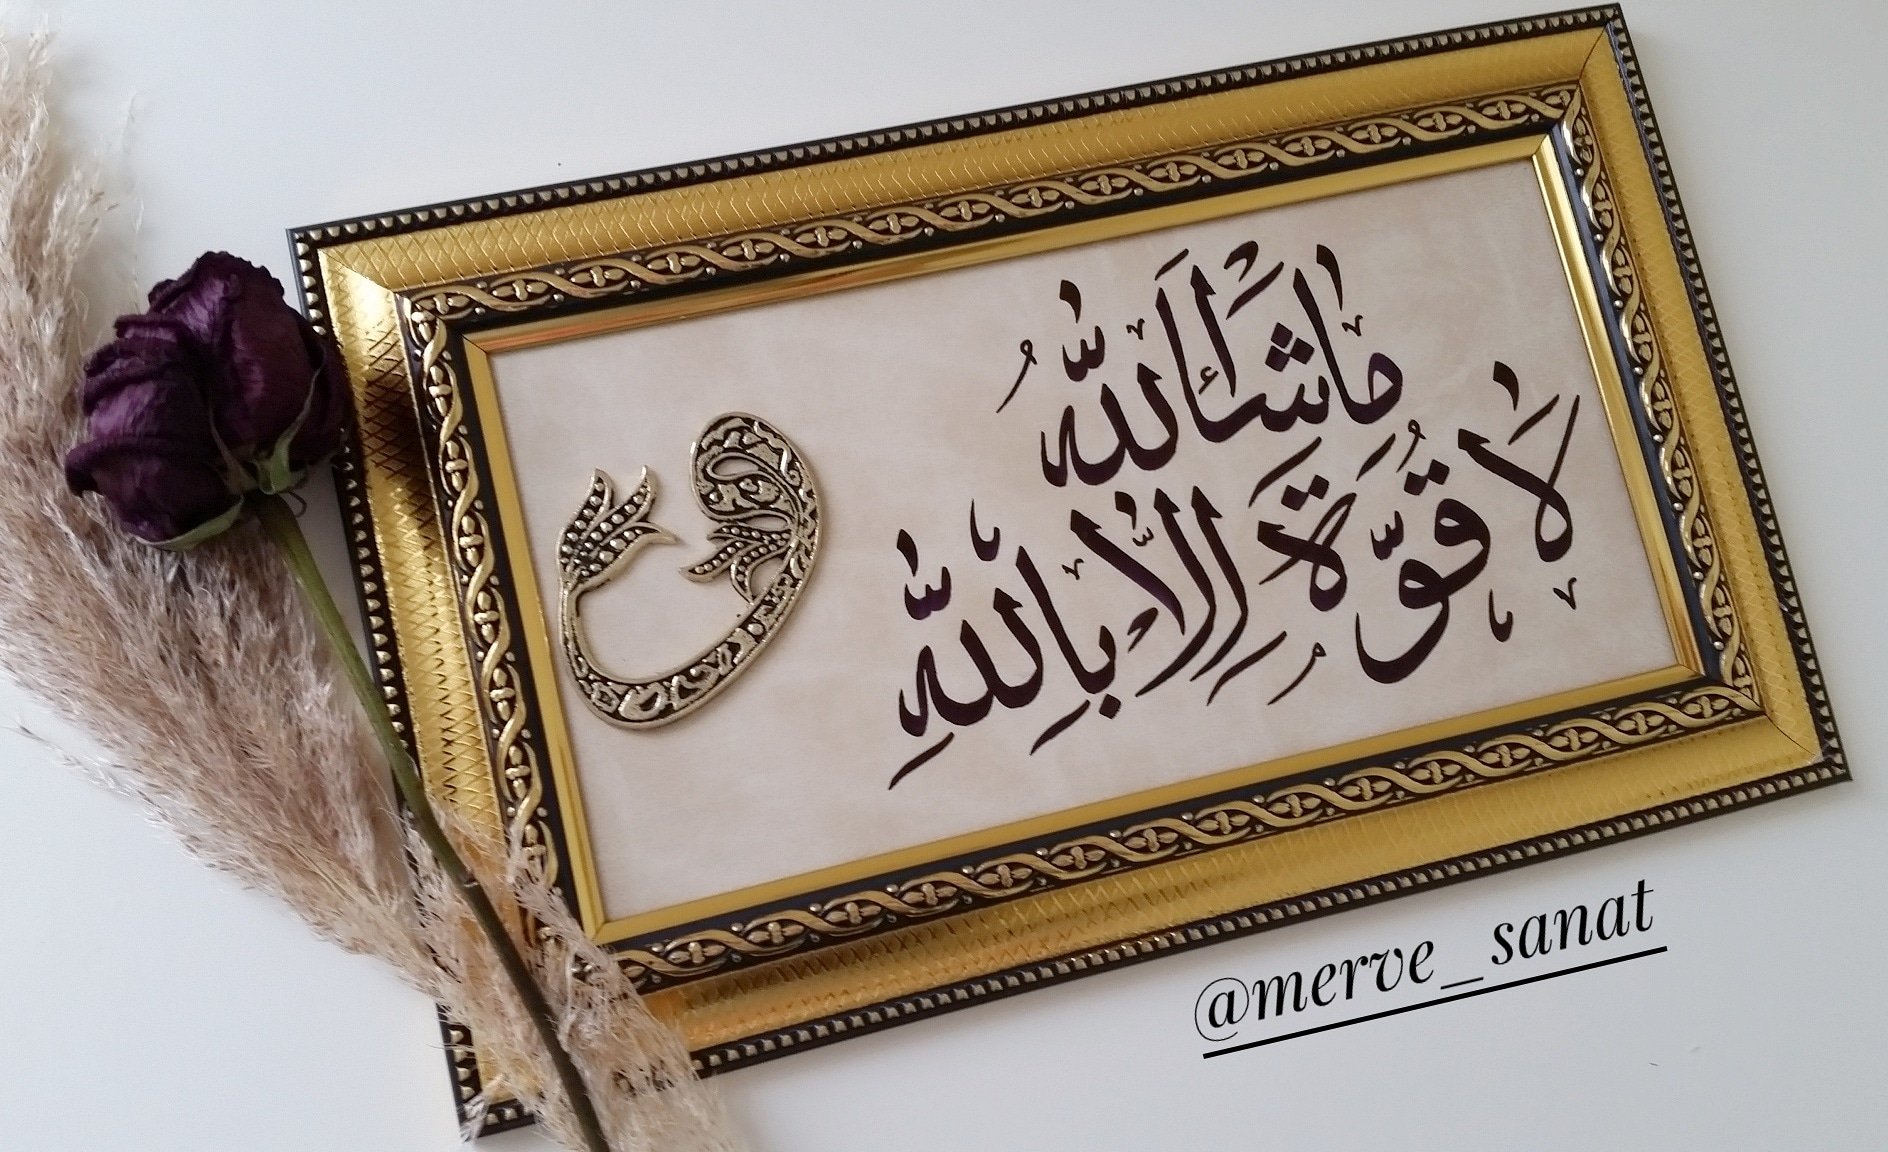 مَاشَاءَ اللّٰهُ
لَا قُوَّةَ اِلَّا بِاللّٰهِ
و
@merve_sanat